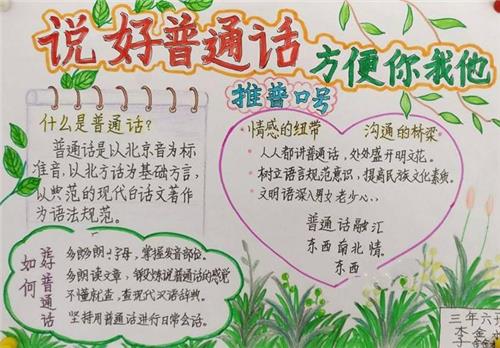 说好普通话
方便你我他
推普口号
什么是普通话?
普通话是以北京音为标
准音,以北方话为基础方言,
以典范的现代白话文著作
为语法规范。
情感的纽带 沟通的桥梁
人人都讲普通话,处处盛开明文花。
树立语言规范意识,提高民族文化素质。
文明语深入男女老少心
普通话融汇
东西南北情
东西
如何
说好普通话
多朗朗字母,掌握发音部位。
多朗读文章,锻炼说普通话的感觉
不懂就查,查现代汉语辞典。
坚持用普通话进行日常会话。
三年六班
李金